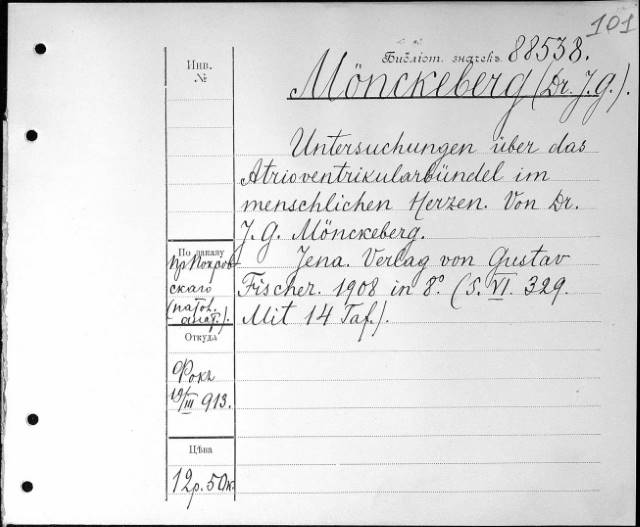 101
Библіот. значекъ 88538.
Mönckeberg (Dr. J. G.).
Инв.
№
Untersuchungen über das
Atrioventrikularbündel im
menschlichen Herzen. Von Dr.
J. G. Mönckeberg.
Jena. Verlag von Gustav
Fischer. 1908 in 8°. (S. VI. 329.
Mit 14 Taf.).
По заказу
Пр Покров-
скаго
(патол.
анат.).
Откуда
Фокъ
19/III 913.
Цѣна
12р. 50к.